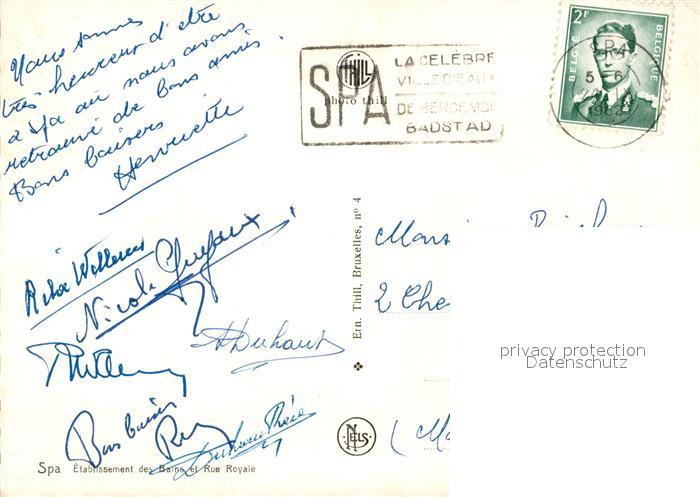 Nous sommes
très heureux d'etre
à Spa où nous avons
retrouvé de bons amis.
Bons baisers
Henriette
SPA
THILL
photo thill
LA CÉLÈBRE
VILLE D'EAUX
DE BEROEMDE
BADSTAD
2F
BELGIE
BELGIQUE
SPA
5 6
Rita Willems
Nicole
Duhaut
Bons baisers
Ern. Thill, Bruxelles, nº 4
2 Che
privacy protection
Datenschutz
NELS
Spa Établissement des Bains et Rue Royale